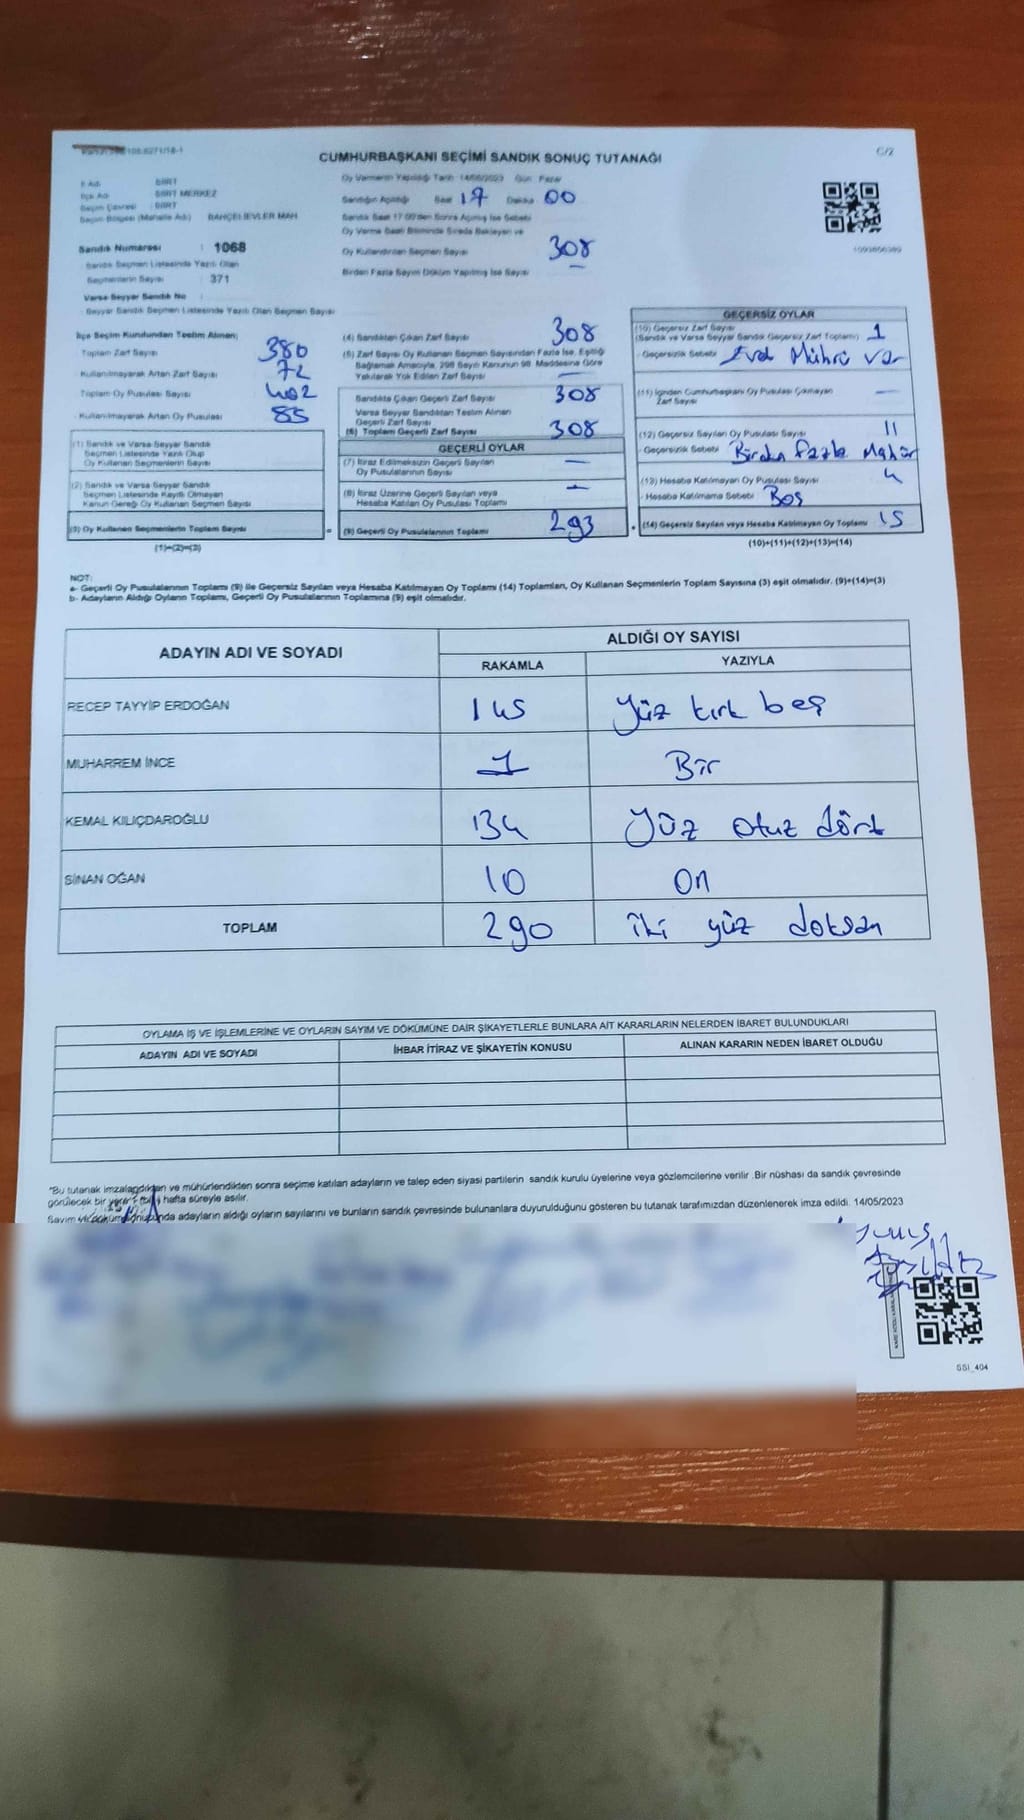 C/2
CUMHURBAŞKANI SEÇİMİ SANDIK SONUÇ TUTANAĞI
İl Adı SİİRT
İlçe Adı SİİRT MERKEZ
Seçim Çevresi : SİİRT
Seçim Bölgesi (Mahalle Adı) BAHÇELİEVLER MAH
Sandık Numarası : 1068
Sandık Seçmen Listesinde Yazılı Olan
Seçmenlerin Sayısı : 371
Varsa Seyyar Sandık No
Seyyar Sandık Seçmen Listesinde Yazılı Olan Seçmen Sayısı
Oy Vermenin Yapıldığı Tarih 14/05/2023 Gün Pazar
Sandığın Açıldığı Saat 17 Dakika 00
Sandık Saat 17:00'den Sonra Açılmış İse Sebebi
Oy Verme Saati Bitiminde Sırada Bekleyen ve
Oy Kullandırılan Seçmen Sayısı 308
Birden Fazla Sayım Döküm Yapılmış İse Sayısı
İlçe Seçim Kurulundan Teslim Alınan;
Toplam Zarf Sayısı 380
Kullanılmayarak Artan Zarf Sayısı 72
Toplam Oy Pusulası Sayısı 402
Kullanılmayarak Artan Oy Pusulası
(1) Sandık ve Varsa Seyyar Sandık
Seçmen Listesinde Yazılı Olup
Oy Kullanan Seçmenlerin Sayısı
(2) Sandık ve Varsa Seyyar Sandık
Seçmen Listesinde Kayıtlı Olmayan
Kanun Gereği Oy Kullanan Seçmen Sayısı
(3) Oy Kullanan Seçmenlerin Toplam Sayısı =
(1)+(2)=(3)
(4) Sandıktan Çıkan Zarf Sayısı 308
(5) Zarf Sayısı Oy Kullanan Seçmen Sayısından Fazla İse, Eşitliği
Sağlamak Amacıyla, 298 Sayılı Kanunun 98. Maddesine Göre
Yakılarak Yok Edilen Zarf Sayısı —
Sandıkta Çıkan Geçerli Zarf Sayısı 308
Varsa Seyyar Sandıktan Teslim Alınan
Geçerli Zarf Sayısı
(6) Toplam Geçerli Zarf Sayısı 308
GEÇERLİ OYLAR
(7) İtiraz Edilmeksizin Geçerli Sayılan
Oy Pusulalarının Sayısı —
(8) İtiraz Üzerine Geçerli Sayılan veya
Hesaba Katılan Oy Pusulası Toplamı —
(9) Geçerli Oy Pusulalarının Toplamı 293
GEÇERSİZ OYLAR
(10) Geçersiz Zarf Sayısı
(Sandık ve Varsa Seyyar Sandık Geçersiz Zarf Toplamı) 1
- Geçersizlik Sebebi Mührü var
(11) İçinden Cumhurbaşkanı Oy Pusulası Çıkmayan
Zarf Sayısı —
(12) Geçersiz Sayılan Oy Pusulası Sayısı 11
- Geçersizlik Sebebi Birden fazla Mühür
(13) Hesaba Katılmayan Oy Pusulası Sayısı 4
- Hesaba Katılmama Sebebi Boş
(14) Geçersiz Sayılan veya Hesaba Katılmayan Oy Toplamı 15
(10)+(11)+(12)+(13)=(14)
NOT:
a- Geçerli Oy Pusulalarının Toplamı (9) ile Geçersiz Sayılan veya Hesaba Katılmayan Oy Toplamı (14) Toplamları, Oy Kullanan Seçmenlerin Toplam Sayısına (3) eşit olmalıdır. (9)+(14)=(3)
b- Adayların Aldığı Oyların Toplamı, Geçerli Oy Pusulalarının Toplamına (9) eşit olmalıdır.
ADAYIN ADI VE SOYADI ALDIĞI OY SAYISI
RAKAMLA YAZIYLA
RECEP TAYYİP ERDOĞAN 145 yüz kırk beş
MUHARREM İNCE 1 Bir
KEMAL KILIÇDAROĞLU 134 yüz otuz dört
SİNAN OĞAN 10 On
TOPLAM 290 iki yüz doksan
OYLAMA İŞ VE İŞLEMLERİNE VE OYLARIN SAYIM VE DÖKÜMÜNE DAİR ŞİKAYETLERLE BUNLARA AİT KARARLARIN NELERDEN İBARET BULUNDUKLARI
ADAYIN ADI VE SOYADI İHBAR İTİRAZ VE ŞİKAYETİN KONUSU ALINAN KARARIN NEDEN İBARET OLDUĞU
*Bu tutanak imzalandıktan ve mühürlendikten sonra seçime katılan adayların ve talep eden siyasi partilerin sandık kurulu üyelerine veya gözlemcilerine verilir. Bir nüshası da sandık çevresinde
görülecek bir yere hafta süreyle asılır.
Sayım ve döküm sonucunda adayların aldığı oyların sayılarını ve bunların sandık çevresinde bulunanlara duyurulduğunu gösteren bu tutanak tarafımızdan düzenlenerek imza edildi. 14/05/2023
SSI_404